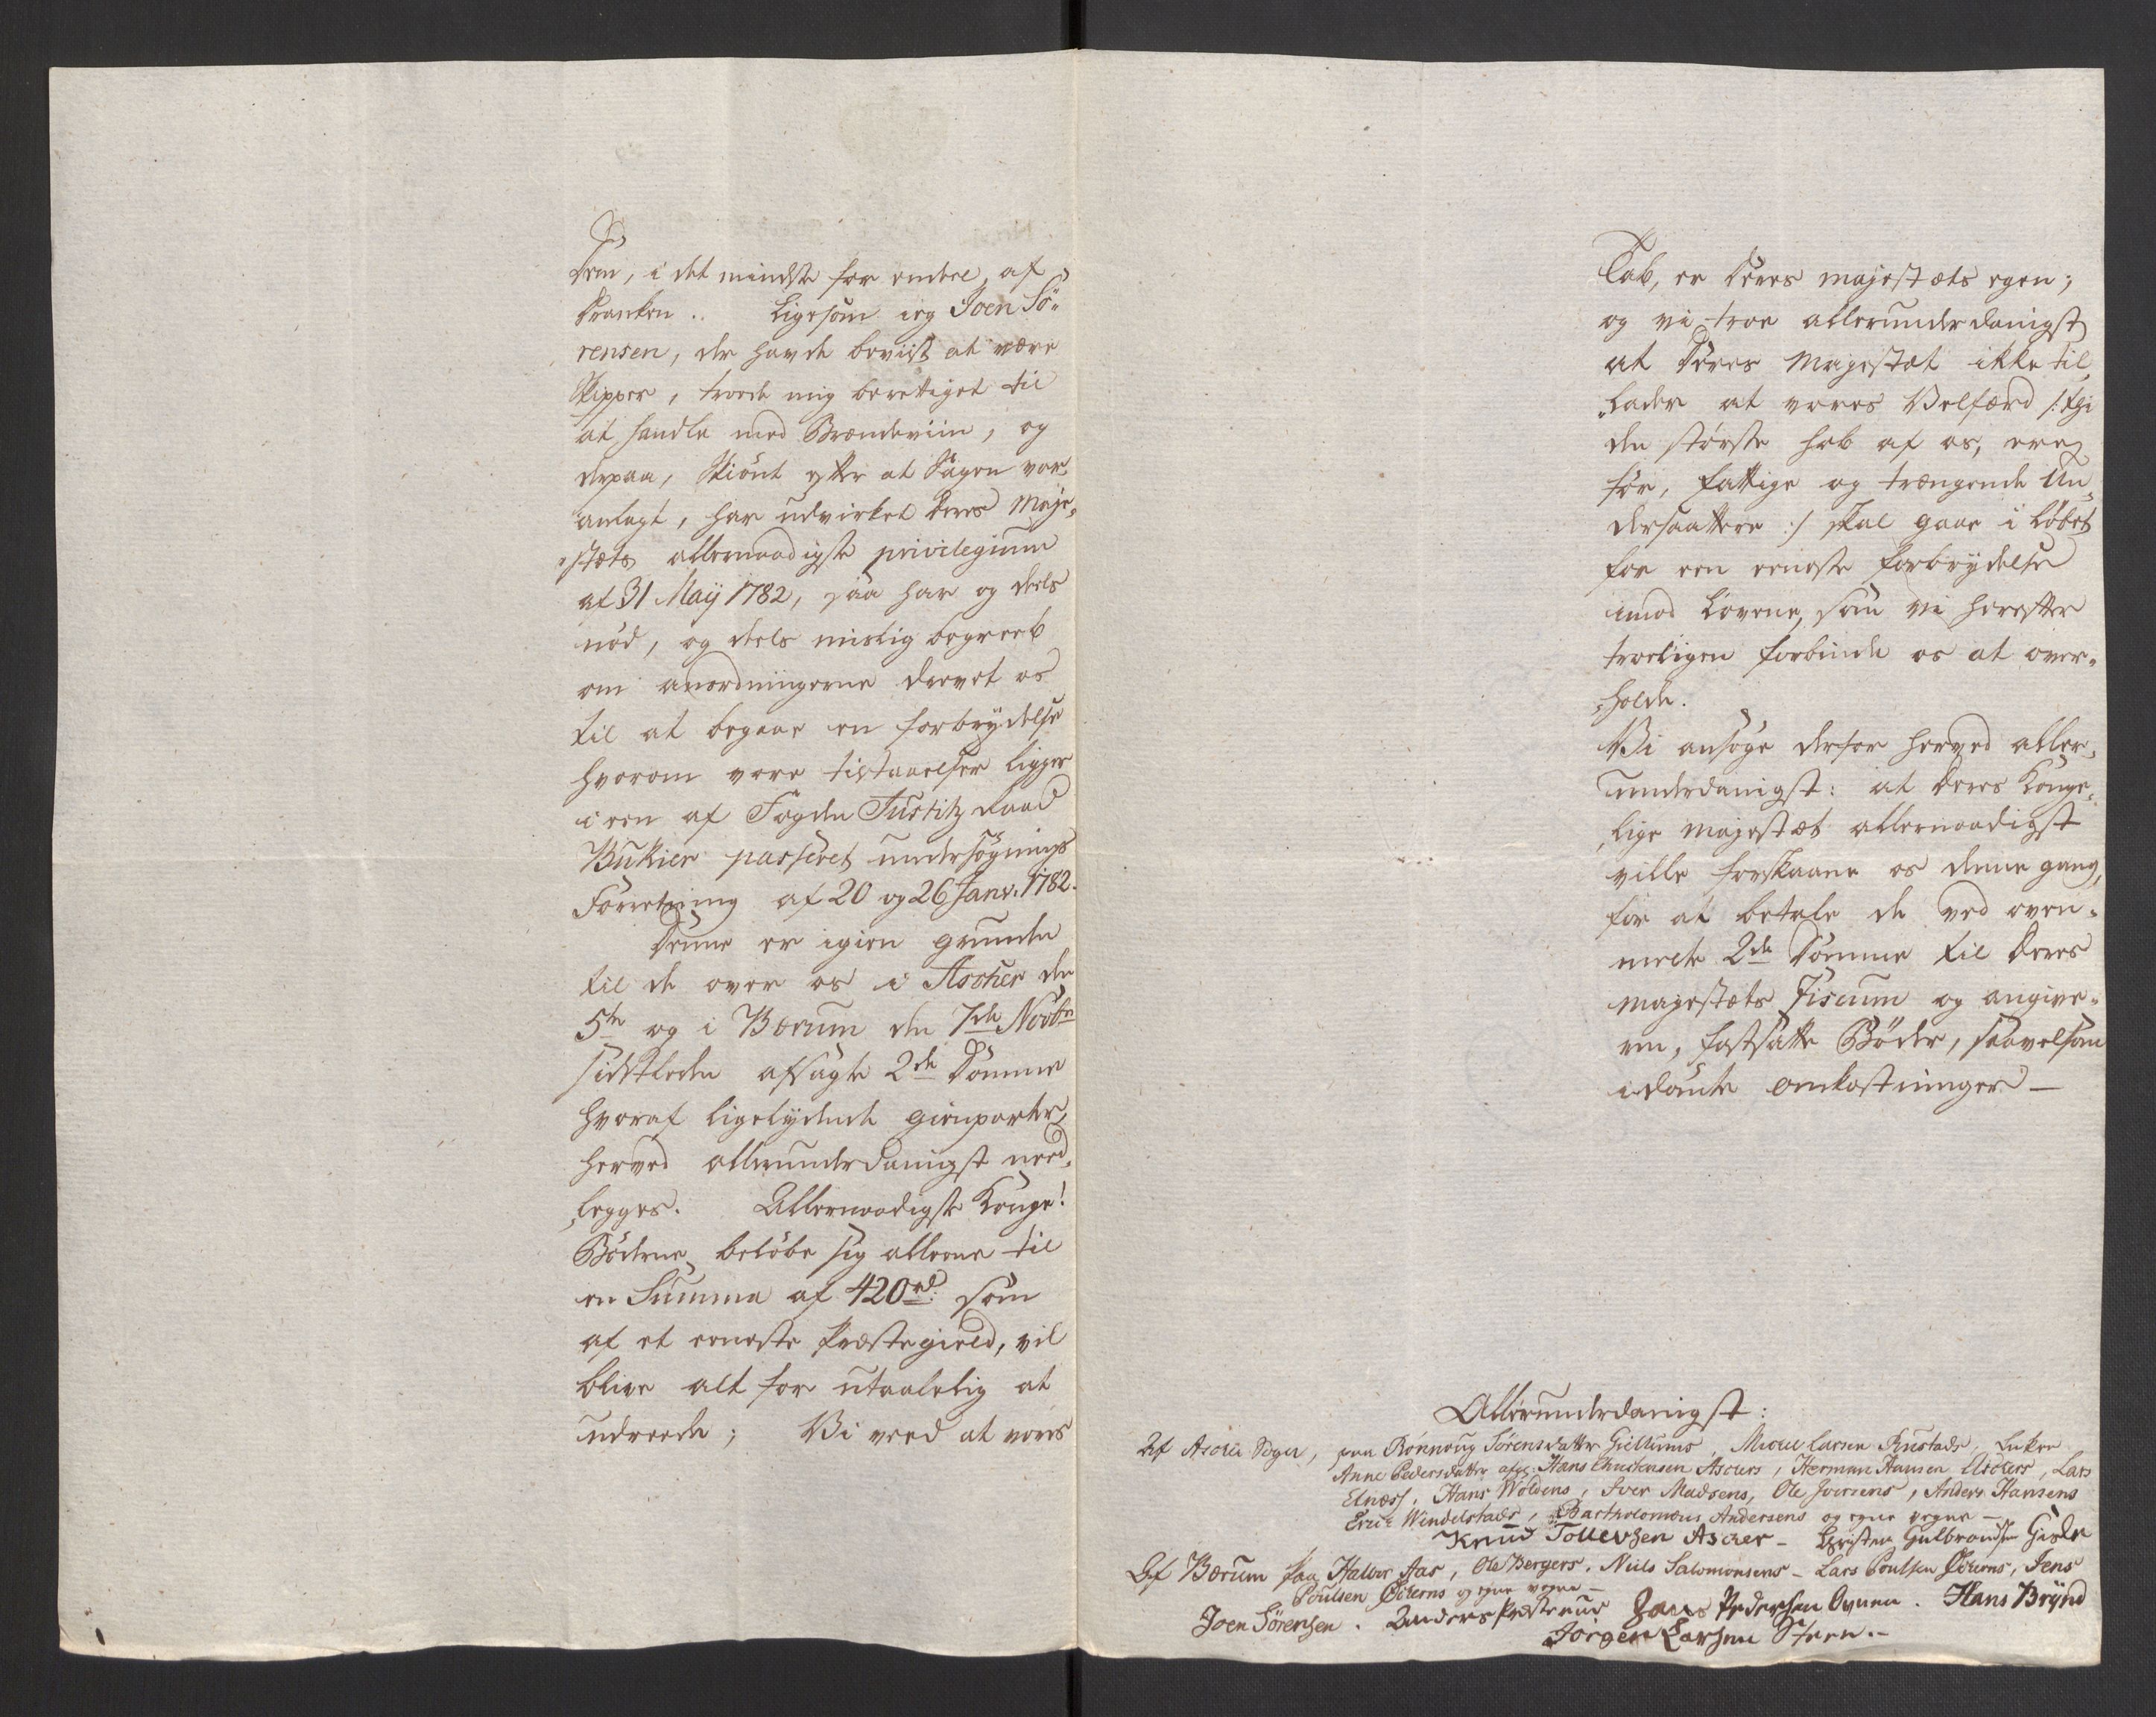 dem, i det mindste for endeel af
Kranken .. Ligesom ieg Joen Sö„
rensen, der havde beviist at være
Skipper, troede mig berettiget til
at handle med Brændeviin, og
derpaa, skiönt efter at Sagen var
anlagt, har udvirket Deres Maje„
„stæts allernaadigste privilegium
af 31 Maÿ 1782, saa har og deels
nöd, og deels mislig begreeb
om anordningerne drevet os
til at begaae en forbrydelse
hvorom vore tilstaaelser ligger
i een af Fogden Justitz Raad
Bukier passeret undersögnings
Forretning af 20 og 26 Janv. 1782.
Denne er igien grunden
til de over os i Ascher den
5te og i Bærum den 7de Novbr
sidstleden afsagte 2de Domme
hvoraf ligelydende gienparter
herved allerunderdanigst need„
„legges. Allernaadigste Konge!
Böderne belöbe sig alleene til
en Summa af 420 rd: som
af et eeneste Præstegield, vil
blive alt for utaalelig at
udreede; Vi veed at vores
Tab, er Deres Majestæts egen;
og vi troe allerunderdanigst
at Deres Majestæt ikke til„
„lader at vores Velfærd /: thi
den störste hob af os, ere
för, fattige og trængende Un„
dersaattere :/ skal gaae i löbet
for een eeneste forbrydelse
imod Lovene, som vi herefter
troeligen forbinde os at over„
„holde.
Vi ansöge derfor herved aller„
underdanigst: at Deres Konge„
„lige Majestæt allernaadigst
ville forskaane os denne gang,
for at betale de ved oven„
meldte 2de Domme til Deres
Majestæts Fiscum og angive„
ren, fastsatte Böder, saavelsom
idömte omkostninger —
Allerunderdanigst:
Af Ascher Sogn, paa Rönnoug Sörensdatter Giellums, Larsen Rustads, Enken
Anne Pedersdatter Hans Christensen Aschers, Herman Hansen Aschers, Lars
Elnæss, Hans Woldens, Iver Madsens, Ole Iversens, Anders Hansens
Eric Wendelstads, Bartholomæus Andersens og egne vegne —
Knud Tollevsen Ascher — Christen Gulbrandsen Gisle
Af Bærum paa Halvor Aas, Ole Bergers, Niels Salomonsens — Lars Poulsen Öderns, Jens
Poulsen Öderns og egne vegne —
Joen Sörensen. Anders Præsterud Hans Pedersen Ovnen. Hans Brÿnd
Jörgen Larsen Steen. —